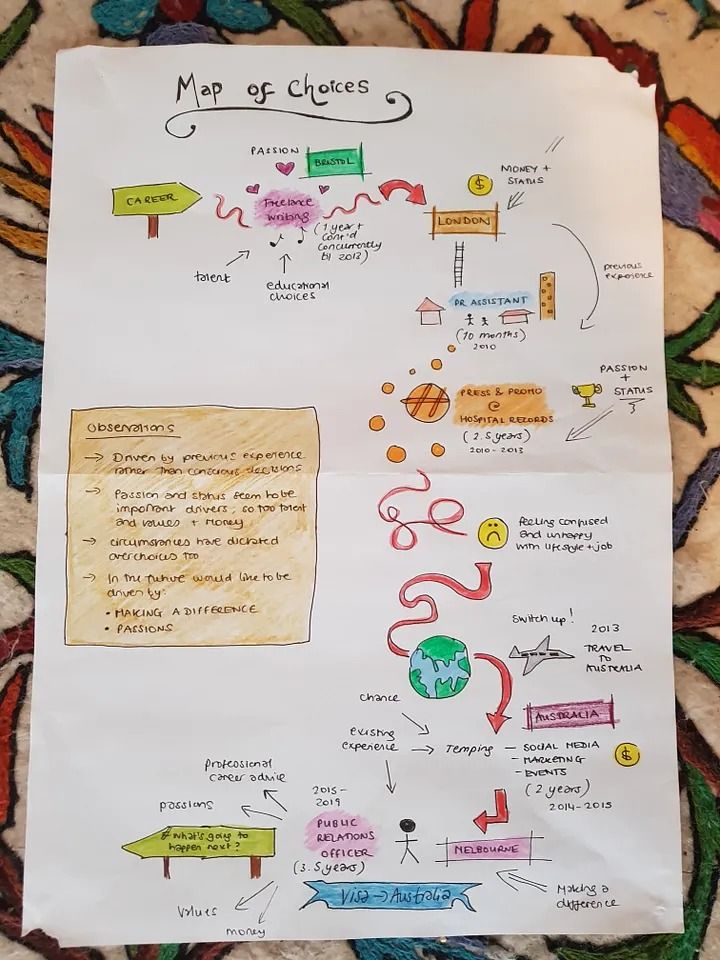 Map of Choices
PASSION
BRISTOL
MONEY +
STATUS
$
CAREER
Freelance
writing
(1 year +
cont'd
concurrently
til 2012)
LONDON
talent
educational
choices
previous
experience
PR ASSISTANT
(10 months)
2010
PASSION
+
STATUS
PRESS & PROMO
@
HOSPITAL RECORDS
(2.5 years)
2010-2013
Observations
→ Driven by previous experience
rather than conscious decisions
→ Passion and status seem to be
important drivers, so too talent
and values + money
→ circumstances have dictated
our choices too
→ In the future would like to be
driven by:
• MAKING A DIFFERENCE
• PASSIONS
feeling confused
and unhappy
with lifestyle + job
Switch up!
2013
TRAVEL
TO
AUSTRALIA
chance
AUSTRALIA
existing
experience
Temping
- SOCIAL MEDIA
- MARKETING
- EVENTS
$
(2 years)
2014-2015
professional
career advice
passions
2015-
2019
PUBLIC
RELATIONS
OFFICER
(3.5 years)
What's going to
happen next?
MELBOURNE
Visa → Australia
Making a
difference
values
money